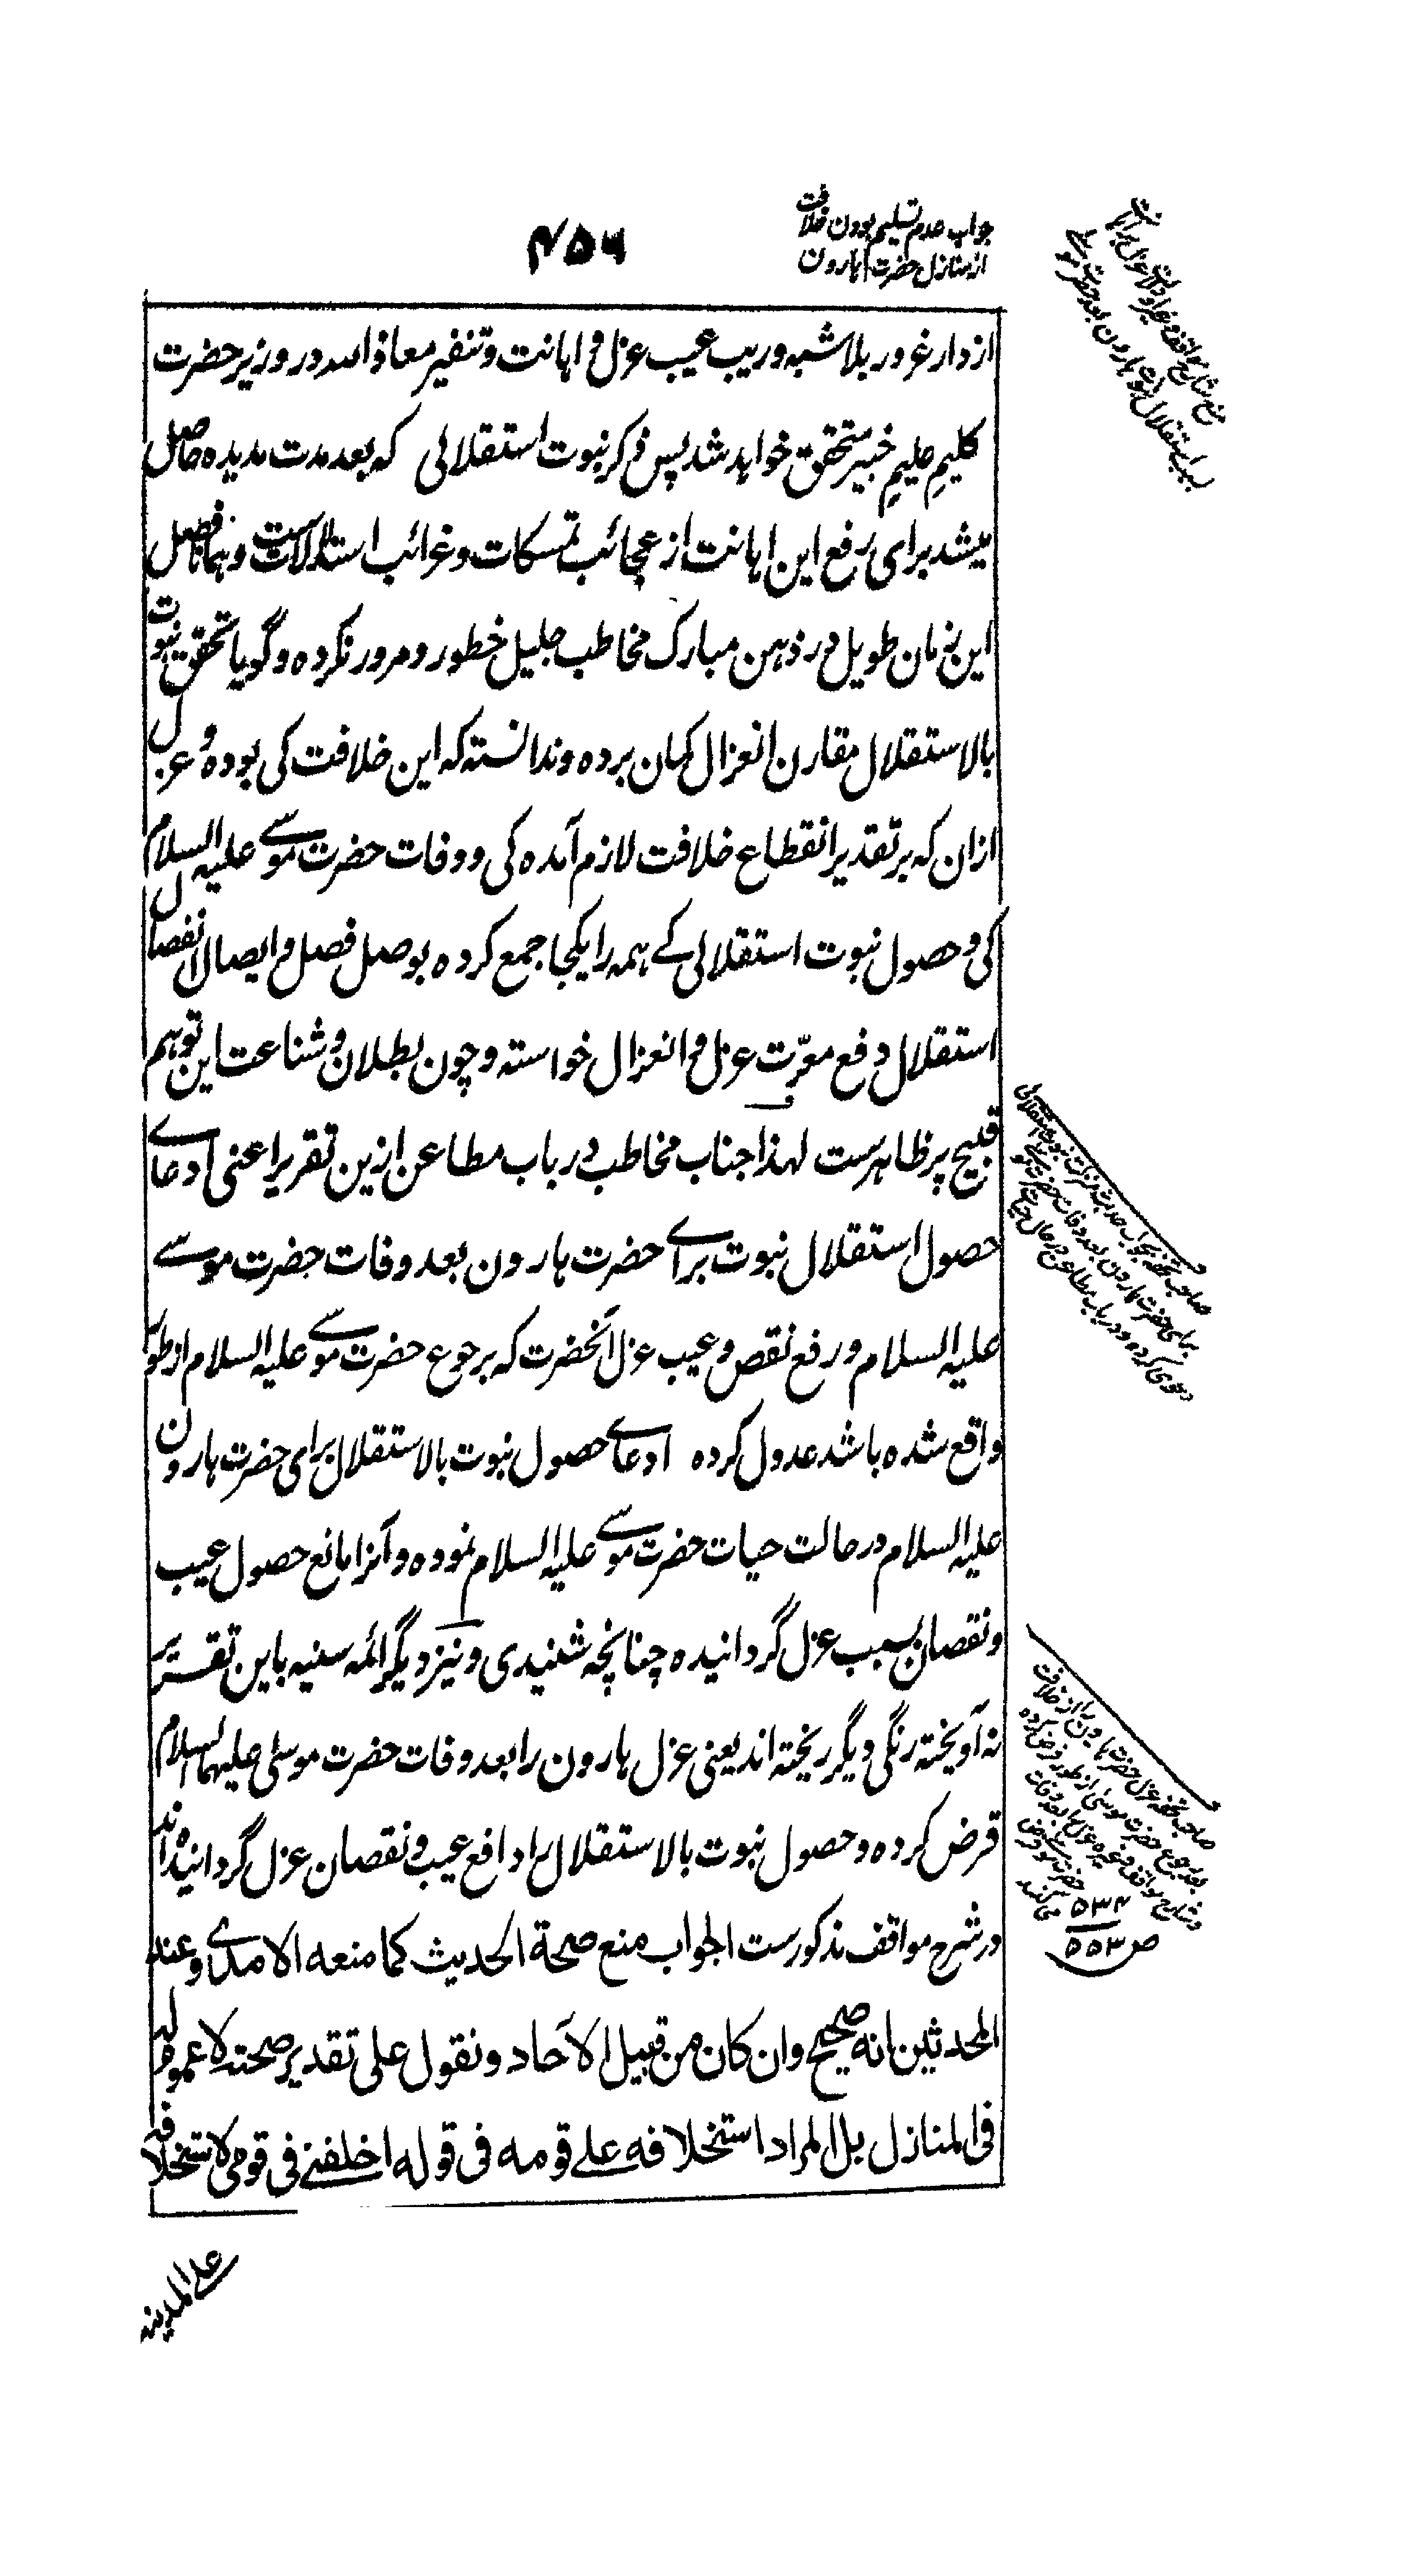 جواب عدم تسلیم بودن خلافت
از منازل حضرت هارون
۴۵۶
از دار غرور بلا شبه و ریب عیب عزل و اهانت و تنفیر معاذ الله در وزیر حضرت
کلیمِ علیمِ خبیر متحقق خواهد شد پس ذکر نبوت استقلالی که بعد مدت مدیده حاصل
میشد برای رفع این اهانت از عجائب تمسکات و غرائب استدلالات ست و همانا فصل
این زمان طویل در ذهن مبارک مخاطب جلیل خطور و مرور نکرده و گویا تحقق نبوت
بالاستقلال مقارن انعزال گمان برده و ندانسته که این خلافت کی بوده و عزل
ازان که بر تقدیر انقطاع خلافت لازم آمده کی و وفات حضرت موسے علیه السلام
کی و حصول نبوت استقلالی کے همه را یکجا جمع کرده بوصل فصل و ایصال انفصال
استقلال دفع معرّت عزل و انعزال خواسته و چون بطلان و شناعت این توهم
قبیح پر ظاهرست لهذا جناب مخاطب در باب مطاعن ازین تقریر اعنی ادعاے
حصول استقلال نبوت براے حضرت هارون بعد وفات حضرت موسے
علیه السلام و رفع نقص و عیب عزل آنحضرت که برجوع حضرت موسے علیه السلام از طور
واقع شده باشد عدول کرده ادعاے حصول نبوت بالاستقلال برای حضرت هارون
علیه السلام در حالت حیات حضرت موسے علیه السلام نموده و آنرا مانع حصول عیب
و نقصان بسبب عزل گردانیده چنانچه شنیدی و نیز دیگر ائمه سنیه باین تقریر
نه آویخته رنگی دیگر ریخته اند یعنی عزل هارون را بعد وفات حضرت موسی علیهما السلام
فرض کرده و حصول نبوت بالاستقلال را دافع عیب و نقصان عزل گردانیده اند
در شرح مواقف مذکورست الجواب منع صحة الحدیث کما منعه الآمدے و عند
المحدثین انه صحیح وان کان من قبیل الآحاد و نقول علی تقدیر صحته لا عموم له
فی المنازل بل المراد استخلافه علے قومه فی قوله اخلفنے فی قومی لاستخلافه
علے المدینه
صاحب تحفه بجواب حدیث منزلت نبوت استقلالی
برای حضرت هارون بعد وفات حضرت موسے
دعوی کرده و در باب مطاعن در حال حیات
صاحب تحفه عزل حضرت هارون را از خلافت
بعد رجوع حضرت موسی از طور فرض کرده
و شارح مواقف وغیره عزل را بعد وفات
حضرت موسے فرض
می کنند
۵۳۴
ص ۵۵۳